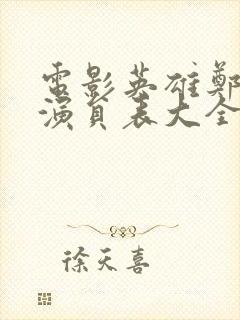 電影英雄鄭
演員表大全
徐天喜